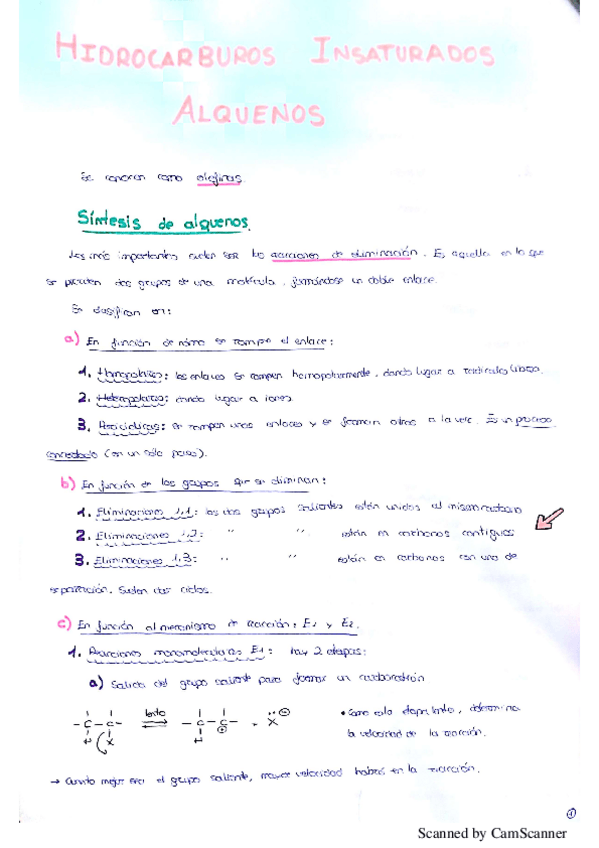 HIDROCARBUROS INSATURADOS
ALQUENOS
Se conocen como olefinas.
Síntesis de alquenos.
Las más importantes suelen ser las reacciones de eliminación. Es aquella en la que
se pierden dos grupos de una molécula, formándose un doble enlace.
Se clasifican en:
a) En función de cómo se rompe el enlace:
1. Homopolares: los enlaces se rompen homopolarmente, dando lugar a radicales libres.
2. Heteropolares: dando lugar a iones.
3. Pericíclicas: se rompen unos enlaces y se forman otros a la vez. Es un proceso
concertado (en un sólo paso).
b) En función de los grupos que se eliminan:
1. Eliminaciones 1,1: los dos grupos salientes están unidos al mismo carbono
2. Eliminaciones 1,2: " " están en carbonos contiguos
3. Eliminaciones 1,3: " " están en carbonos con uno de
separación. Suelen dar ciclos.
c) En función al mecanismo de reacción: E1 y E2.
1. Reacciones monomoleculares E1: hay 2 etapas:
a) Salida del grupo saliente para formar un carbocatión
-C-C- lento ⇌ -C-C- + X ⊖
H X H ⊕
• Como esta etapa lenta, determina
la velocidad de la reacción.
→ Cuanto mejor sea el grupo saliente, mayor velocidad habrá en la reacción.
1
Scanned by CamScanner